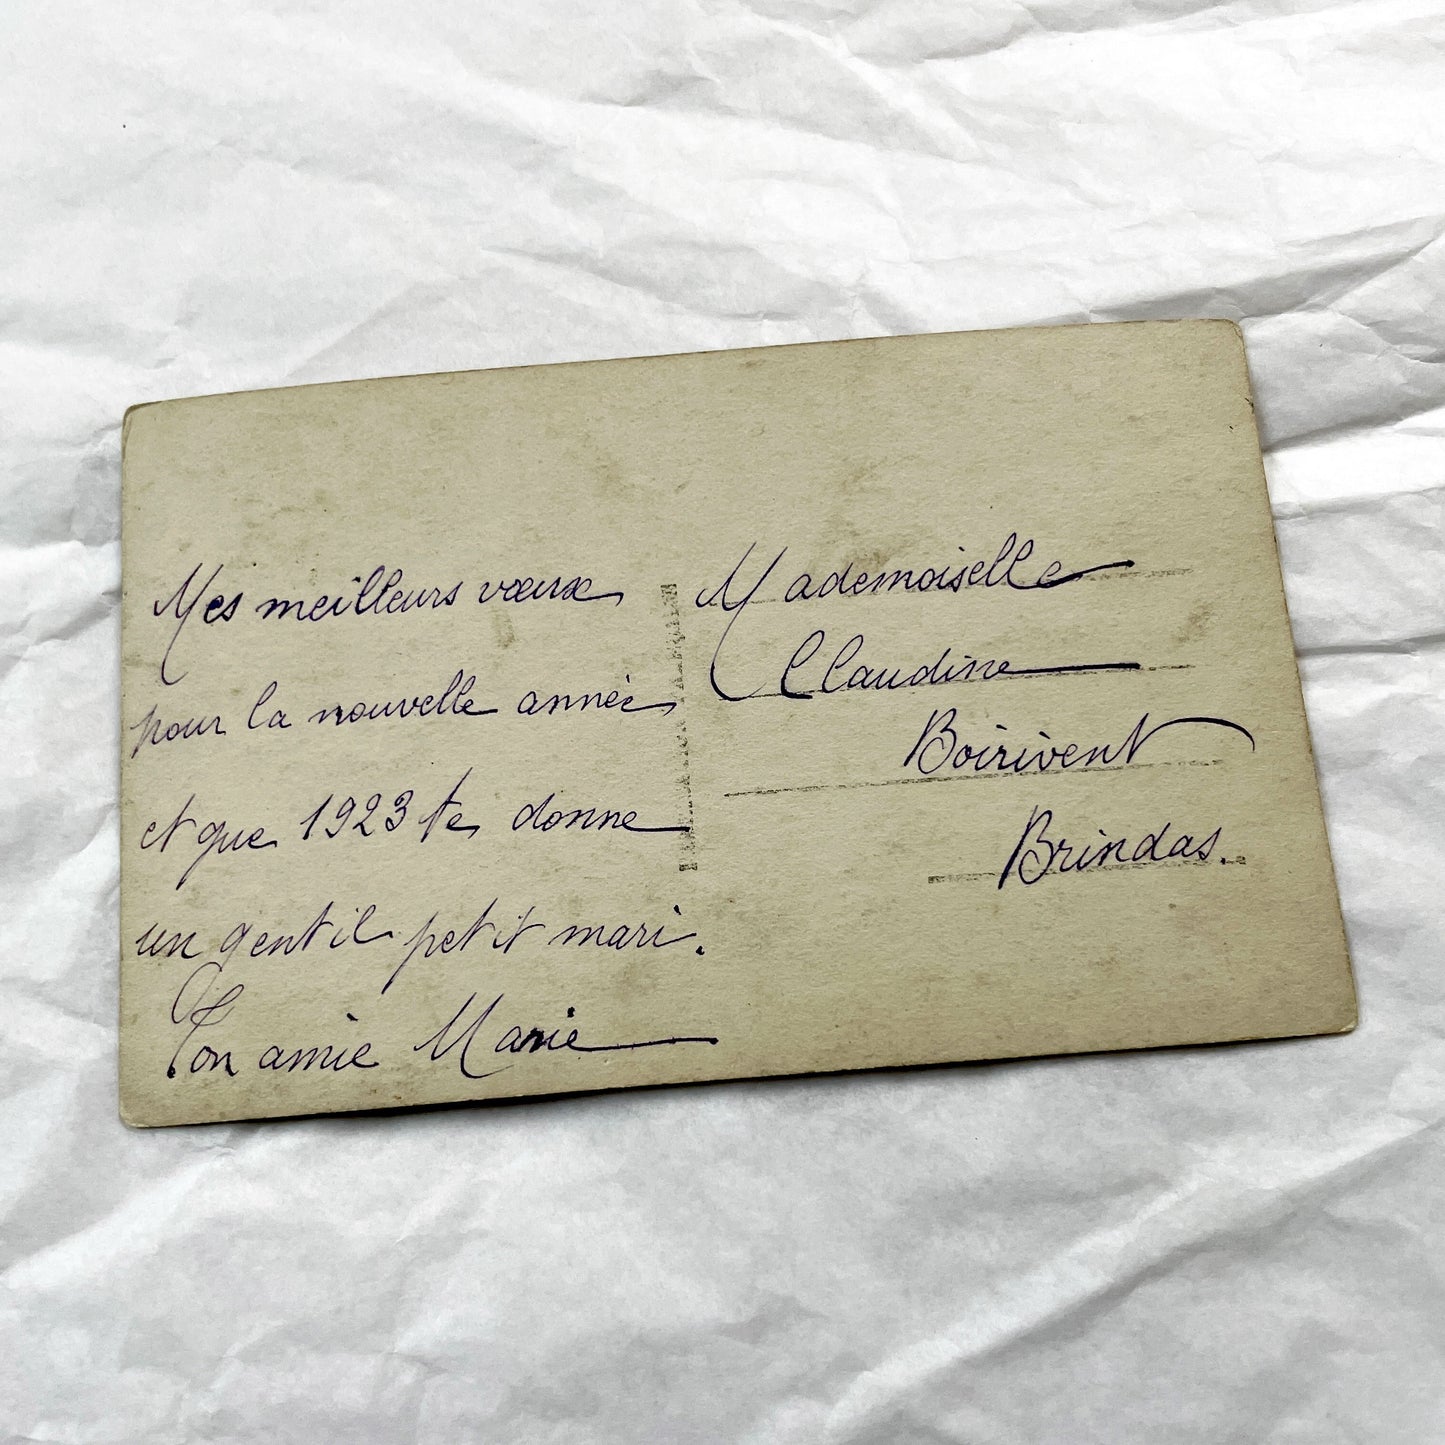 Mes meilleurs vœux
pour la nouvelle année
et que 1923 te donne
un gentil petit mari.
Ton amie Marie
Mademoiselle
Claudine
Boirivent
Brindas.